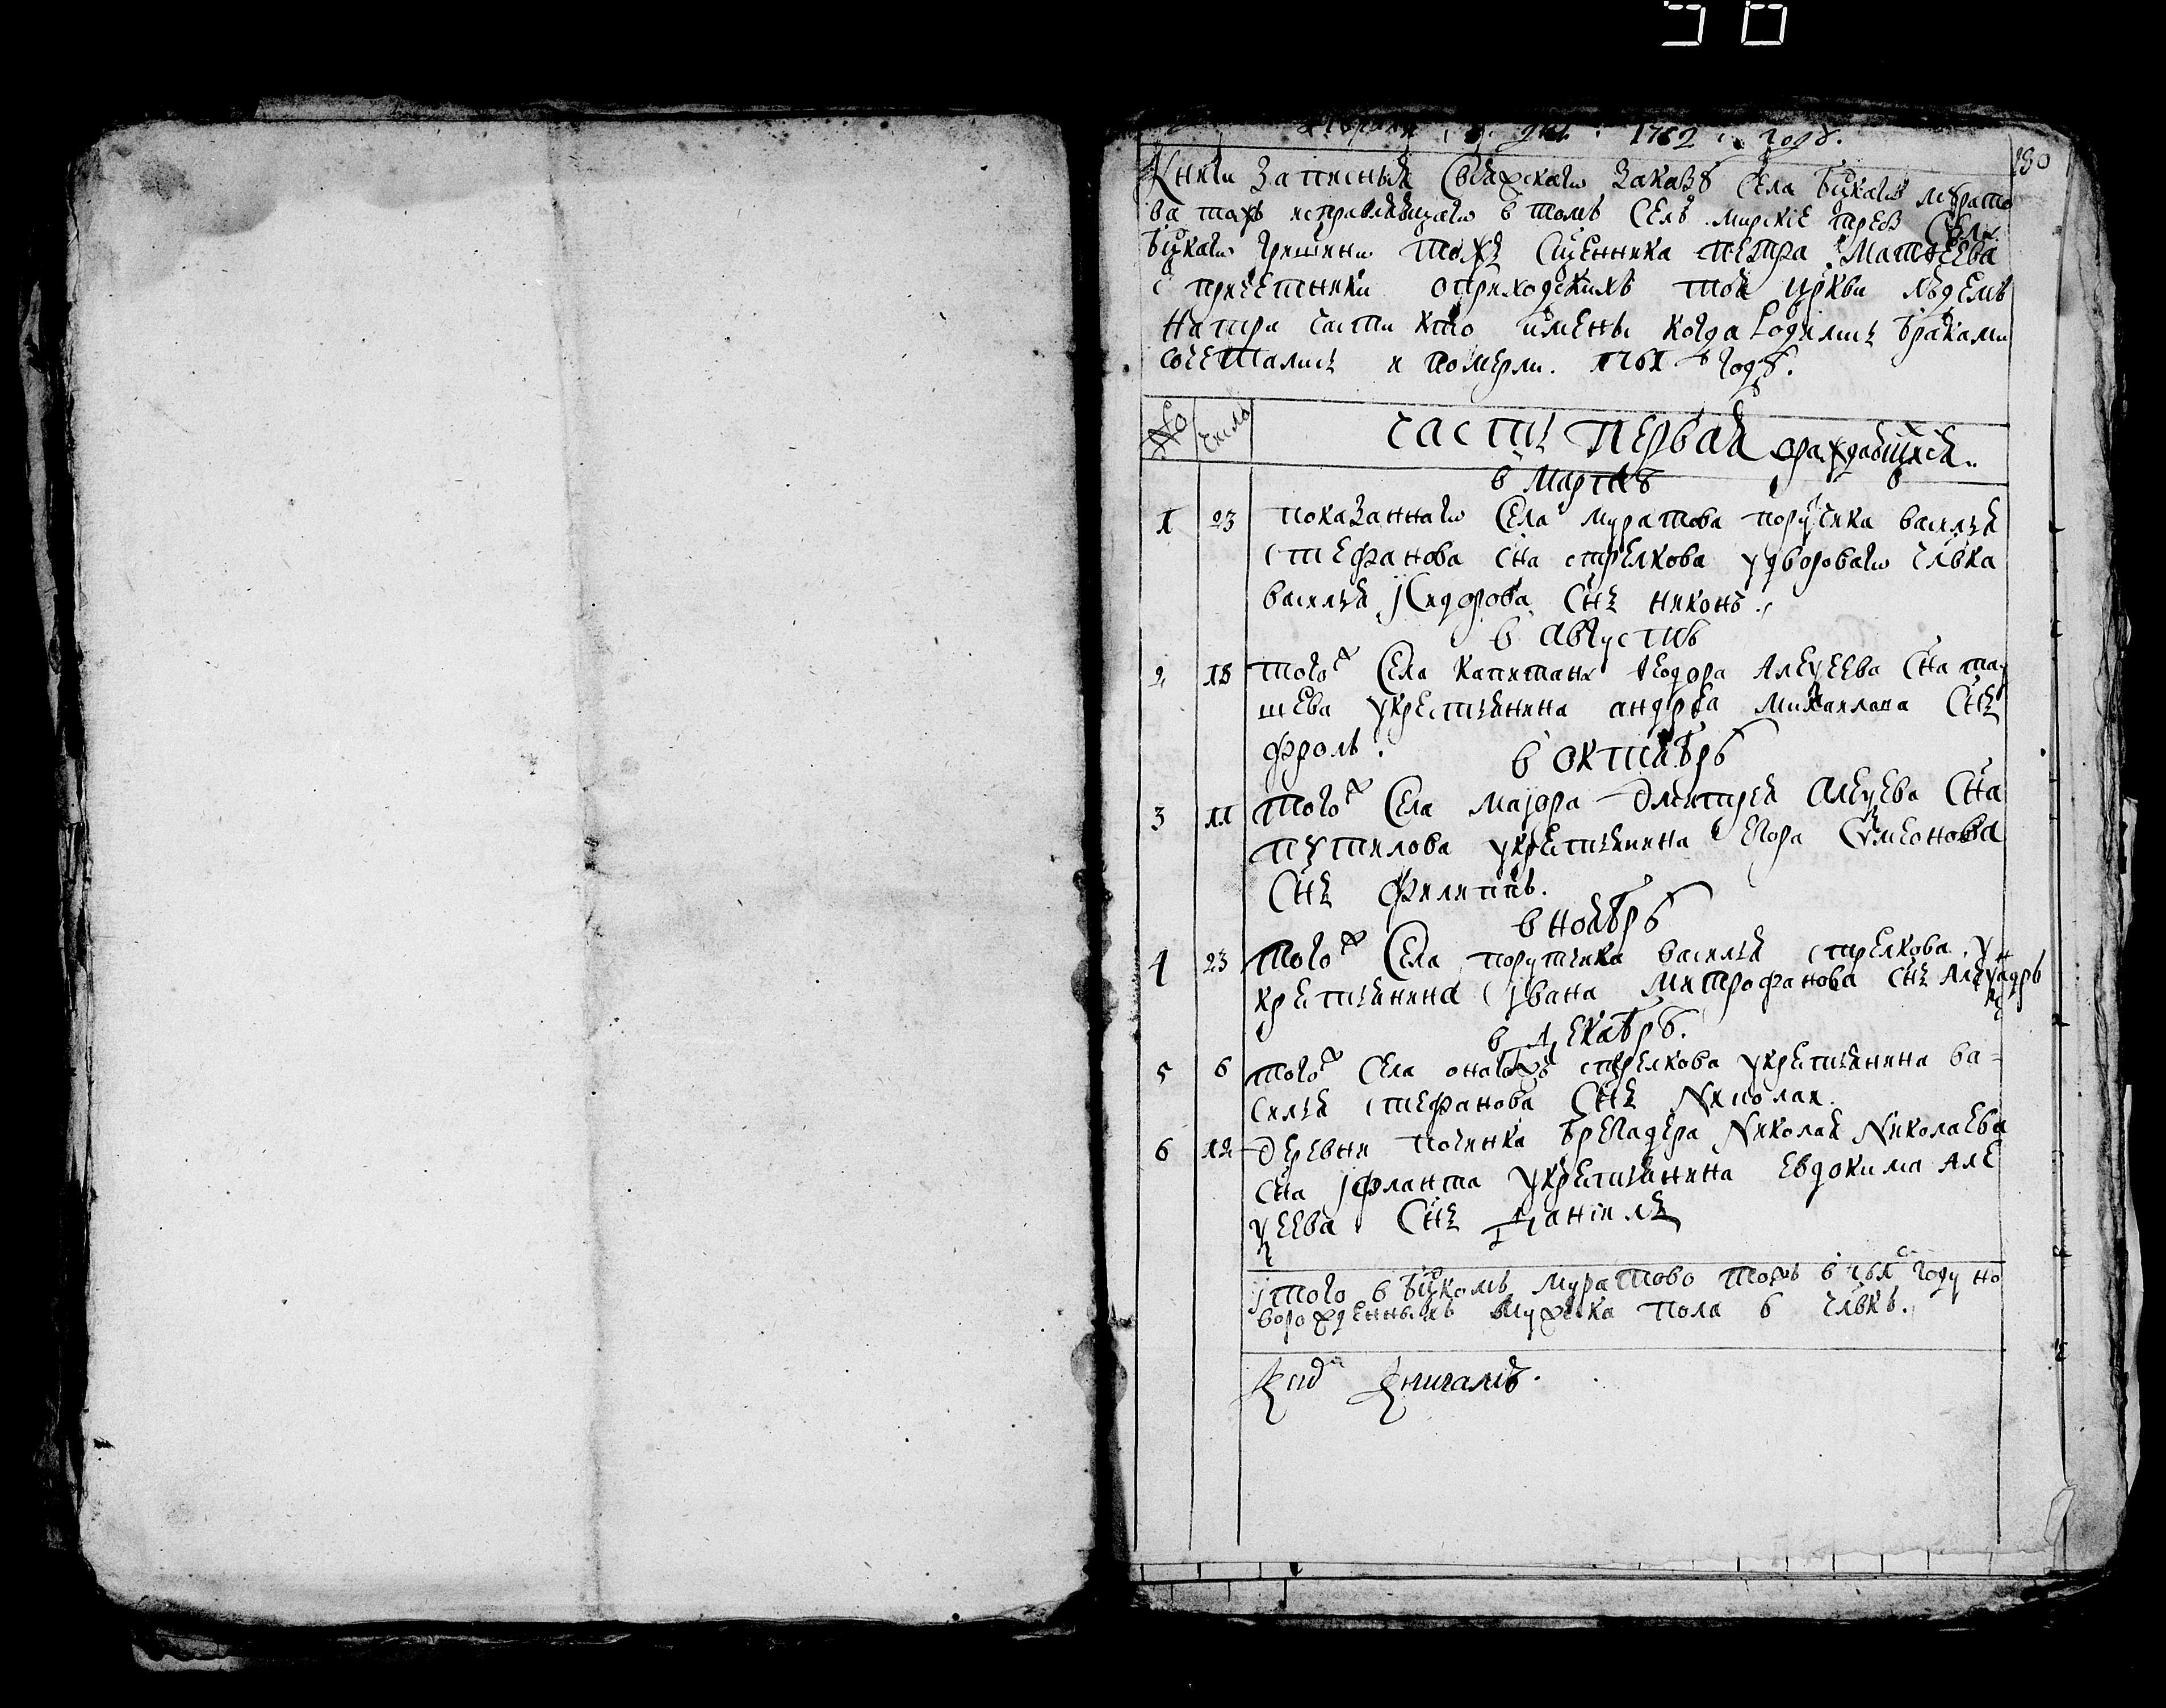 1762 году.
180
Книги записныя Свияжскаго заказу села Буцкаго мурато
ва тожъ исправляющаго в томъ селѣ мирские треб села
Буцкаго тожъ сщенника петра Матфеева
с причетники оприходскихъ той цркви людемъ
на три части кто имены когда родились браками
сочетались и померли. 1761 году.
№ число часть первая ораждающихся.
в Мартѣ
1 23 показаннаго села муратова порутчика василья
стефанова сна стрелкова у дворовагω члвка
василья Исидорова снъ никонъ.
в августѣ
2 18 тогож села капитана Феодора Алеѯеева сна та
шева у крестьянина андрея михаилова снъ
фролъ.
в октябрѣ
3 11 тогож села маіора Дмитрея Алеѯева сна
путилова у крестьянина егора Сѵмеонова
снъ филиппъ.
в ноябрѣ
4 23 тогож села порутчика василья стрелкова у
крестьянина Iвана Митрофанова снъ Алеѯадръ
в декабрѣ.
5 6 тогож села онагожъ стрелкова у крестьянина ва=
силья стефанова снъ Николаи.
6 12 деревни починка бреГадера Николая Николаева
сна Iфланта у крестьянина евдокима Але
ѯеева снъ Даніилъ
Iтого в Буцкомъ муратово тожъ в 761 году но
ворожденныхъ мужеска пола 6 члвкъ.
къ сиd книгамъ.